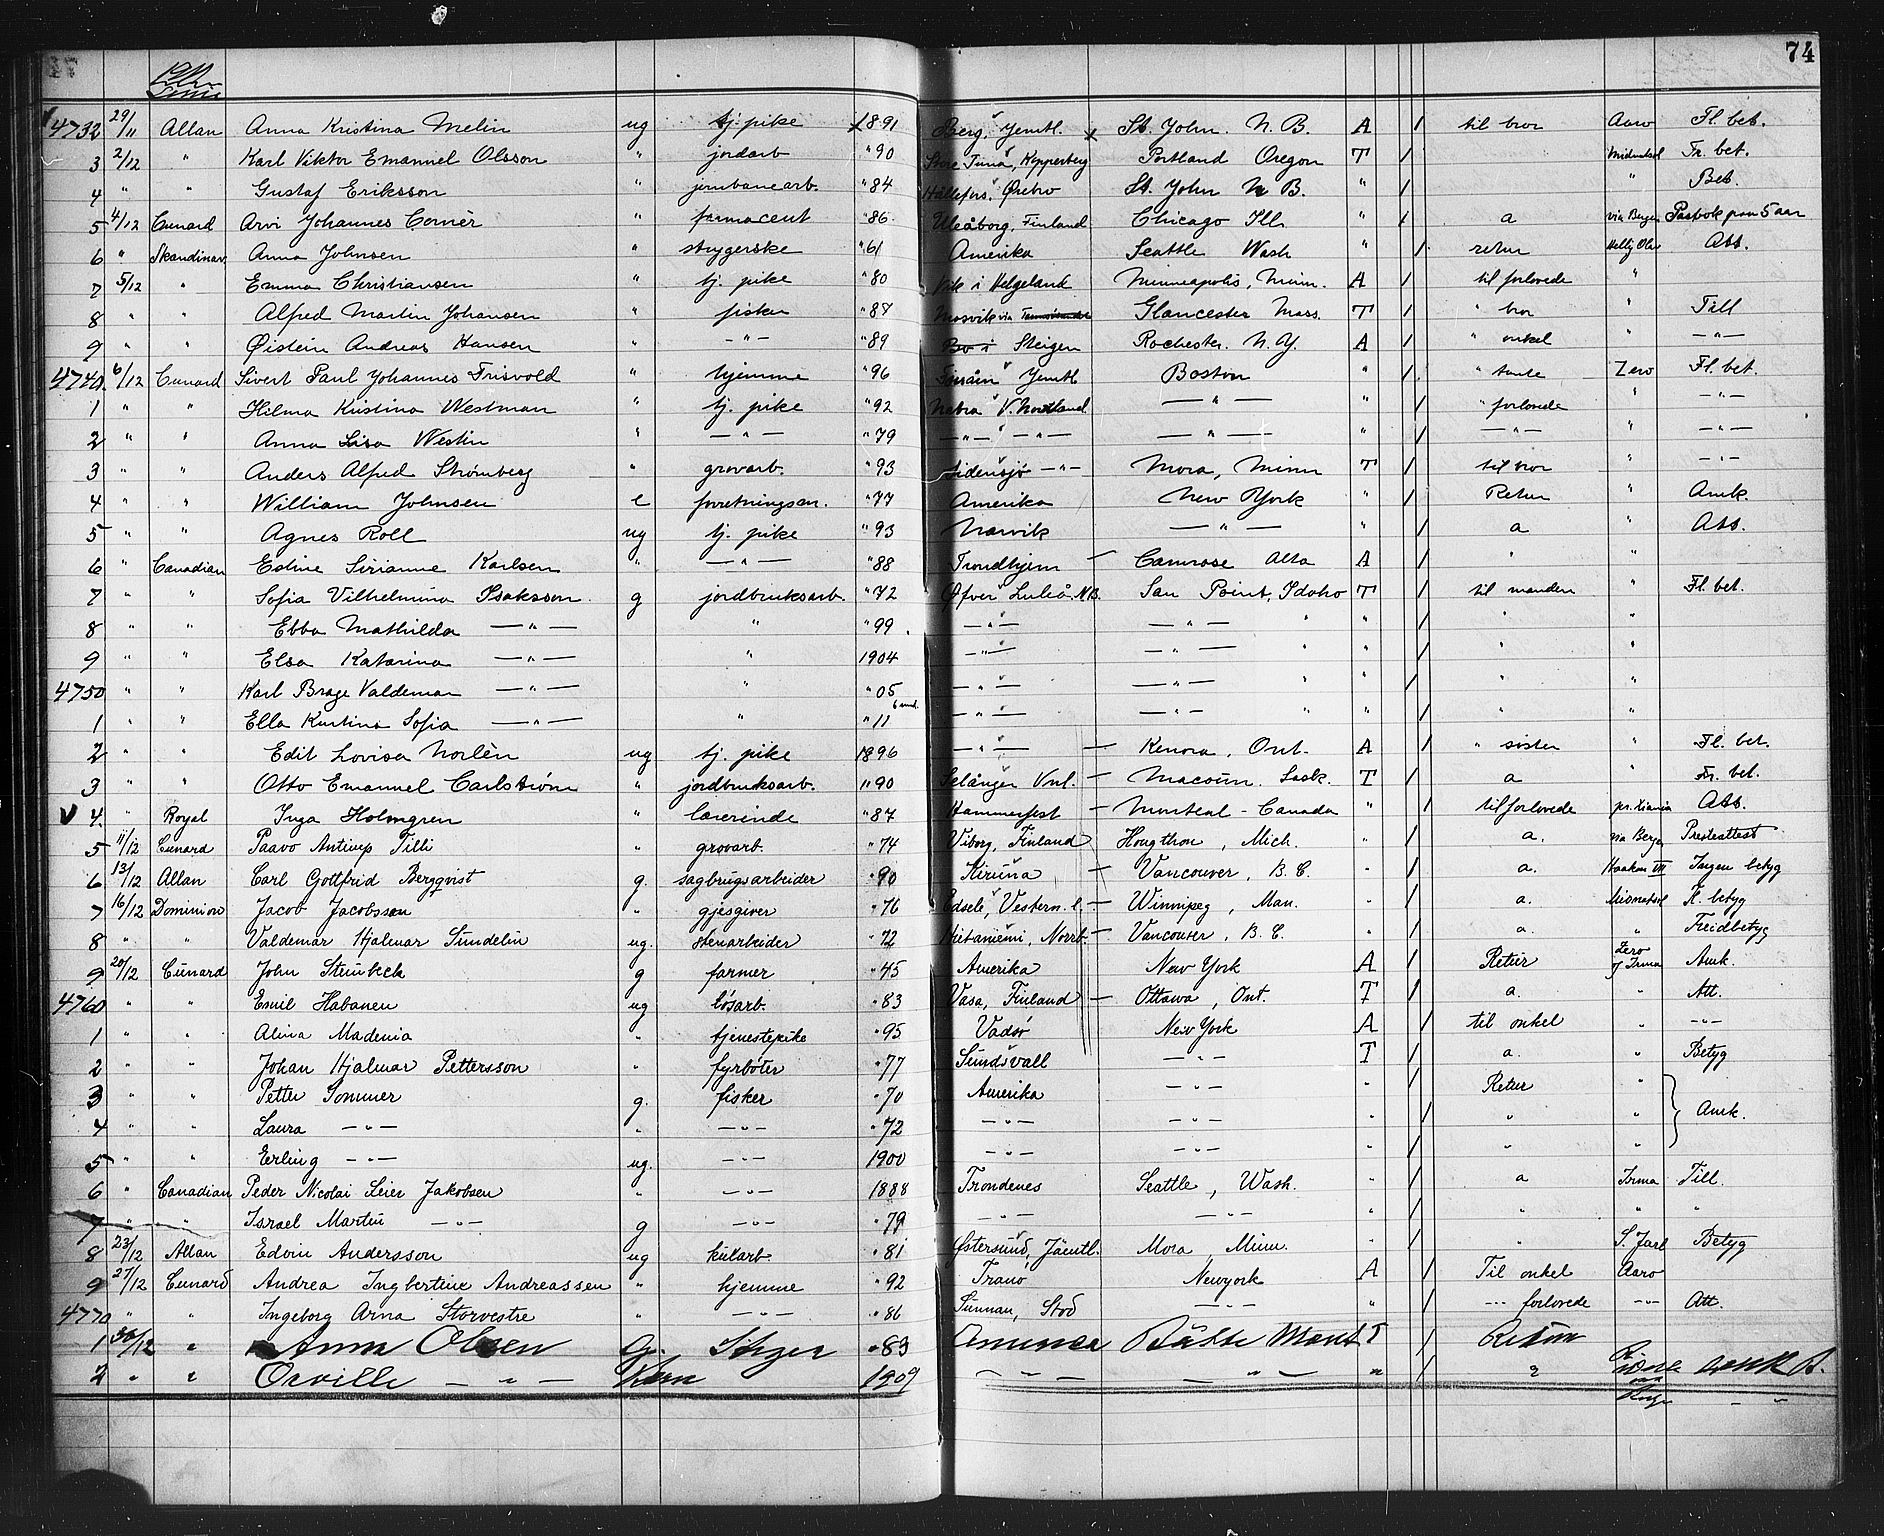 74
1911
Linie
4732 29/11 Allan Anna Kristina Melin ug tj. pike 1891 Berg, Jemtl. St. John. N. B. A / til bror Aaro Fl. bet.
3 2/12 " Karl Viktor Emanuel Olsson " jordarb " 90 Stora Tuna, Kopperberg Portland Oregon T / Midnatsol Fr. bet.
4 " " Gustaf Eriksson " jernbanearb. " 84 Hällefors, Örebro St. John N B. " / " Bet.
5 4/12 Cunard Arvi Johannes Cornér " farmaceut " 86 Uleåborg, Finland Chicago Ill. " / a via Bergen Pasbok paa 5 aar
6 " Skandinav. Anna Johnsen " strygerske " 61 Amerika Seattle Wash " / retur Hellig Olav Att.
7 5/12 " Emma Christiansen " tj. pike " 80 Vik i Helgeland Minneapolis, Minn. A / til forlovede "
8 " " Alfred Martin Johansen " fisker " 87 Mosvik via Gloucester Mass. T / " bror " Till
9 " " Øistein Andreas Hansen " — " — " 89 Bo i Steigen Rochester. N. Y. A / " onkel " — " —
4740 6/12 Cunard Sivert Paul Johannes Frisvold " hjemme " 96 Jemtl Boston " / " tante Zero Fl. bet.
1 " " Hilma Kristina Westman " tj. pike " 92 Nätra V. Norrland — " — " / " forlovede " — " —
2 " " Anna Lisa Westin " — " — " 79 — " — " — " — — " — " / — " — " — " —
3 " " Anders Alfred Strømberg " grovarb. " 93 Sidensjö — " — Mora, Minn T / til bror " — " —
4 " " William Johnsen e forretningsm. " 77 Amerika New York " / Retur " Amk.
5 " " Agnes Roll ug tj. pike " 93 Narvik — " — " / a " Att.
6 " Canadian Esline Sirianne Karlsen " — " — " 88 Trondhjem — Camrose Alta A / " "
7 " " Sofia Vilhelmina Isaksson g jordbruksarb. " 72 Øfver Luleå N.B. San Point, Idaho T / til manden " Fl. bet.
8 " " Ebba Mathilda — " — " " 99 — " — — " — " " / " "
9 " " Elsa Katarina — " — " 1904 — " — — " — " " / " "
4750 " " Karl Brage Valdemar — " — " " 05 — " — — " — " " / " "
1 " " Ella Kristina Sofia — " — " " 11 6 mnd. — " — — " — " " / " "
2 " " Edit Lovisa Norlén ug tj. pike 1896 — " — — Kenora, Ont. A / " søster " Fl. bet.
3 " " Otto Emanuel Carlstrøm " jordbruksarb. " 90 Selånger Vnl. — Macoun. Sask. T / a " Fr. bet.
4 " Royal Inga Holmgren " lærerinde " 87 Hammerfest — Montreal - Canada " / til forlovede pr. Xiania Att.
5 11/12 Cunard Paavo Antinp Tilli " grovarb. " 74 Viborg, Finland Hougthon, Mich. " / a. via Bergen Presteattest
6 13/12 Allan Carl Gottfrid Bergqvist g. sagbrugsarbeider " 90 Kiruna — Vancouver, B. C. " / a. Haakon VII Ingen betyg
7 16/12 Dominion Jacob Jacobsson " gjesgiver " 76 Edsele, Vestern. l. — Winnipeg, Man. " / a. Midnatsol Fl. betyg
8 " " Valdemar Hjalmar Sundelin ug. stenarbeider " 72 Hietaniemi, Norrb. — Vancouver, B. C. " / a. " Freidbetyg
9 20/12 Cunard John Steinbeck g farmer " 45 Amerika New York A / Retur Zero / Irma Amk.
4760 " " Emil Habanen ug løsarb. " 83 Vasa, Finland — Ottawa, Ont. T / a. " Att.
1 " " Alina Madenia " tjenestepike " 95 Vadsø New York A / til onkel " — " —
2 " " Johan Hjalmar Pettersson " fyrbøter " 77 Sundsvall — " — T / a. " Betyg
3 " " Petter Sommer g. fisker " 70 Amerika — " — " / Retur "
4 " " Laura — " — " — " — " 72 — " — — " — " / " " Amk.
5 " " Erling — " — ug. — " — 1900 — " — — " — " / " "
6 " Canadian Peder Nicolai Leier Jakobsen " — " — 1888 Trondenes Seattle, Wash. " / a Irma Till.
7 " " Israel Martin — " — g — " — " 79 — " — — " — " / " " "
8 23/12 Allan Edvin Andersson ug kularb. " 81 Østersund, Jämtl. Mora, Minn. " / " S. Jarl Betyg
9 27/12 Cunard Andrea Ingbertine Andreassen " hjemme " 92 Tranø Newyork A / Til onkel Aaro
4770 " " Ingeborg Arna Storvestre " — " — " 86 Sunnan, Stod — " — " / — " — forlovede — " — Att.
1 30/12 " Anna Olsen g. " 83 Amerika Bütte Mont T / Retur
2 " " Orville — " — 1909 — " — — " — " / " Amk B.